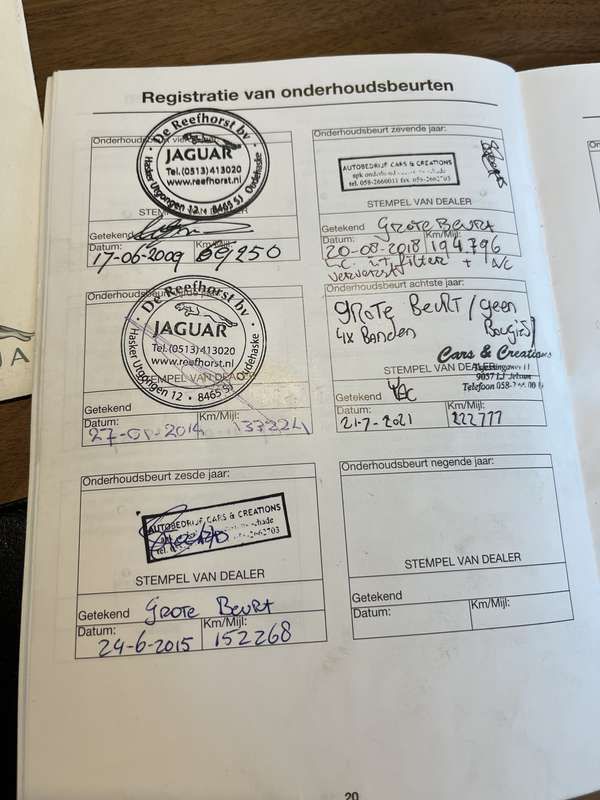 Registratie van onderhoudsbeurten
Onderhoudsbeurt
De Reefhorst bv
JAGUAR
Tel. (0513) 413020
www.reefhorst.nl
Hasker Utgongen 12 • 8465 SJ Oudehaske
Getekend
Datum:
17-06-2009
69250
Onderhoudsbeurt
De Reefhorst bv
JAGUAR
Tel. (0513) 413020
www.reefhorst.nl
Hasker Utgongen 12 • 8465 SJ Oudehaske
STEMPEL VAN DEALER
Getekend
Datum:
Km/Mijl:
2014
Onderhoudsbeurt zesde jaar:
AUTOBEDRIJF CARS & CREATIONS
STEMPEL VAN DEALER
Getekend GROTE BEURT
Datum:
Km/Mijl:
24-6-2015
152268
Onderhoudsbeurt zevende jaar:
AUTOBEDRIJF CARS & CREATIONS
tel. 058-2660011 fax 058-2662703
STEMPEL VAN DEALER
Getekend GROTE BEURT
Datum:
Km/Mijl:
20-08-2018
194796
filter + A/C
ververst
Onderhoudsbeurt achtste jaar:
GROTE BEURT / (geen
4x Banden Bougies)
Cars & Creations
Telefoon 058-
STEMPEL VAN DEALER
Getekend
Datum:
Km/Mijl:
21-7-2021
222777
Onderhoudsbeurt negende jaar:
STEMPEL VAN DEALER
Getekend
Datum:
Km/Mijl:
20